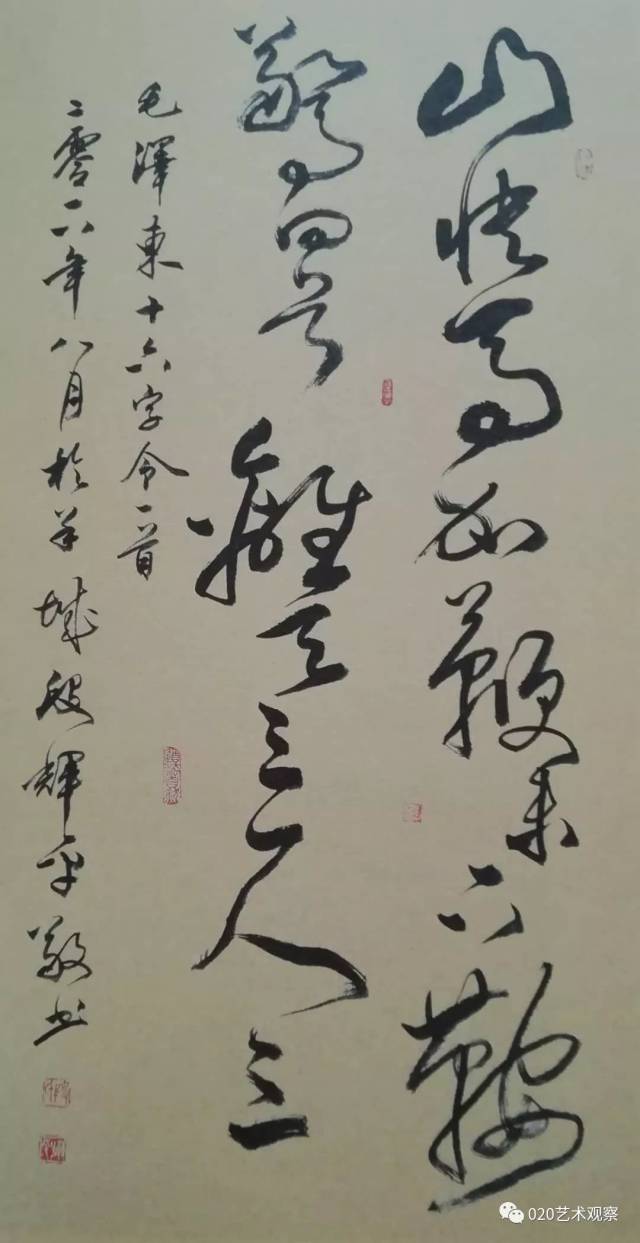 山快馬加鞭未下鞍
驚回首離天三尺三
毛澤東十六字令一首
二零一六年八月於羊城殷輝平敬书
020艺术观察